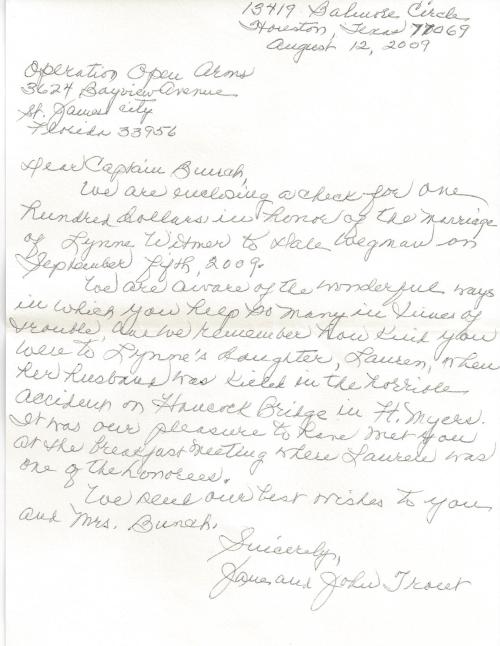 13419 Balmore Circle
Houston, Texas 77069
August 12, 2009
Operation Open Arms
3624 Bayview Avenue
St. James City
Florida 33956
Dear Captain Bunch,
We are enclosing a check for one
hundred dollars in honor of the marriage
of Lynne Witmer to Dale Wegman on
September fifth, 2009.
We are aware of the wonderful ways
in which you help so many in times of
trouble, and we remember how kind you
were to Lynne's daughter, Lauren, when
her husband was killed in the horrible
accident on Hancock Bridge in Ft. Myers.
It was our pleasure to have met you
at the breakfast meeting where Lauren was
one of the honorees.
We send our best wishes to you
and Mrs. Bunch.
Sincerely,
Jane and John Trout